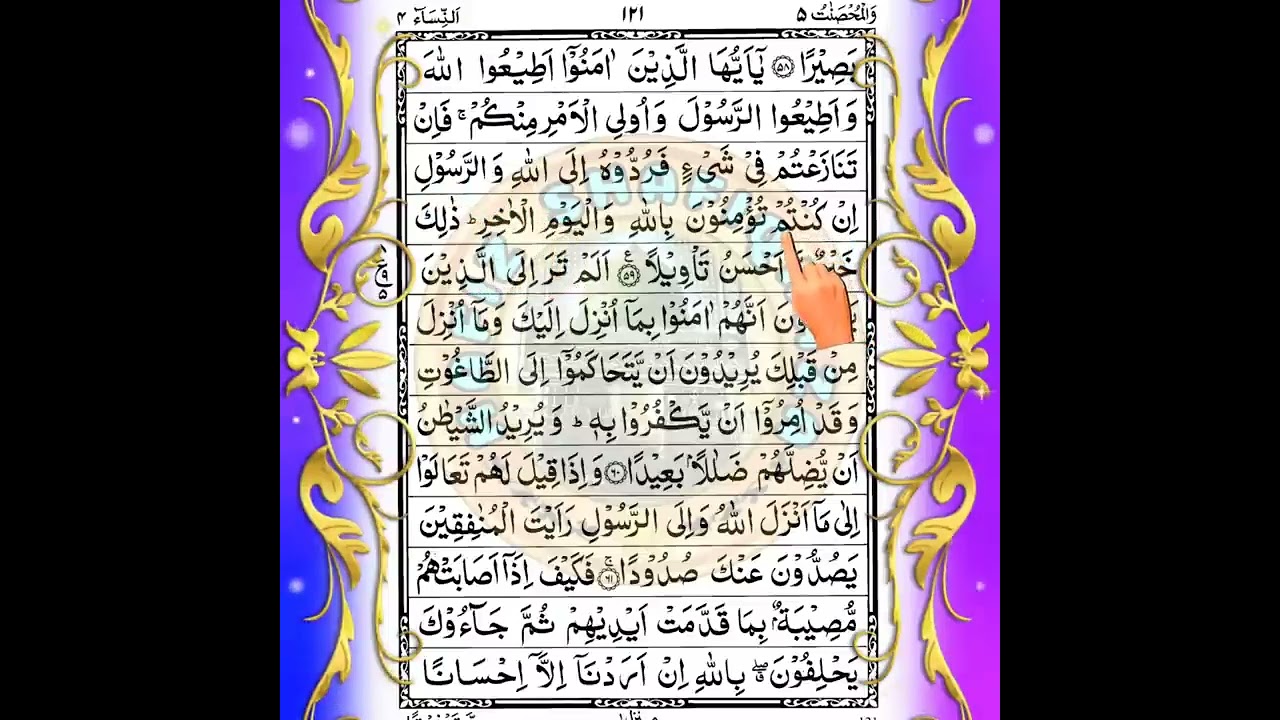 وَالْمُحْصَنٰتُ ۵ ١٢١ اَلنِّسَآء ۴
بَصِيْرًا ۝۵۸ يٰۤاَيُّهَا الَّذِيْنَ اٰمَنُوْۤا اَطِيْعُوا اللّٰهَ
وَاَطِيْعُوا الرَّسُوْلَ وَاُولِي الْاَمْرِ مِنْكُمْ ۚ فَاِنْ
تَنَازَعْتُمْ فِيْ شَيْءٍ فَرُدُّوْهُ اِلَى اللّٰهِ وَالرَّسُوْلِ
اِنْ كُنْتُمْ تُؤْمِنُوْنَ بِاللّٰهِ وَالْيَوْمِ الْاٰخِرِ ؕ ذٰلِكَ
خَيْرٌ وَّاَحْسَنُ تَاْوِيْلًا ۝۵۹ اَلَمْ تَرَ اِلَى الَّذِيْنَ
اَنَّهُمْ اٰمَنُوْا بِمَاۤ اُنْزِلَ اِلَيْكَ وَمَاۤ اُنْزِلَ
مِنْ قَبْلِكَ يُرِيْدُوْنَ اَنْ يَّتَحَاكَمُوْۤا اِلَى الطَّاغُوْتِ
وَقَدْ اُمِرُوْۤا اَنْ يَّكْفُرُوْا بِهٖ ؕ وَيُرِيْدُ الشَّيْطٰنُ
اَنْ يُّضِلَّهُمْ ضَلٰلًاۢ بَعِيْدًا ۝۶۰ وَاِذَا قِيْلَ لَهُمْ تَعَالَوْا
اِلٰى مَاۤ اَنْزَلَ اللّٰهُ وَاِلَى الرَّسُوْلِ رَاَيْتَ الْمُنٰفِقِيْنَ
يَصُدُّوْنَ عَنْكَ صُدُوْدًا ۝۶۱ۚ فَكَيْفَ اِذَاۤ اَصَابَتْهُمْ
مُّصِيْبَةٌۢ بِمَا قَدَّمَتْ اَيْدِيْهِمْ ثُمَّ جَآءُوْكَ
يَحْلِفُوْنَ ۖۗ بِاللّٰهِ اِنْ اَرَدْنَاۤ اِلَّاۤ اِحْسَانًا